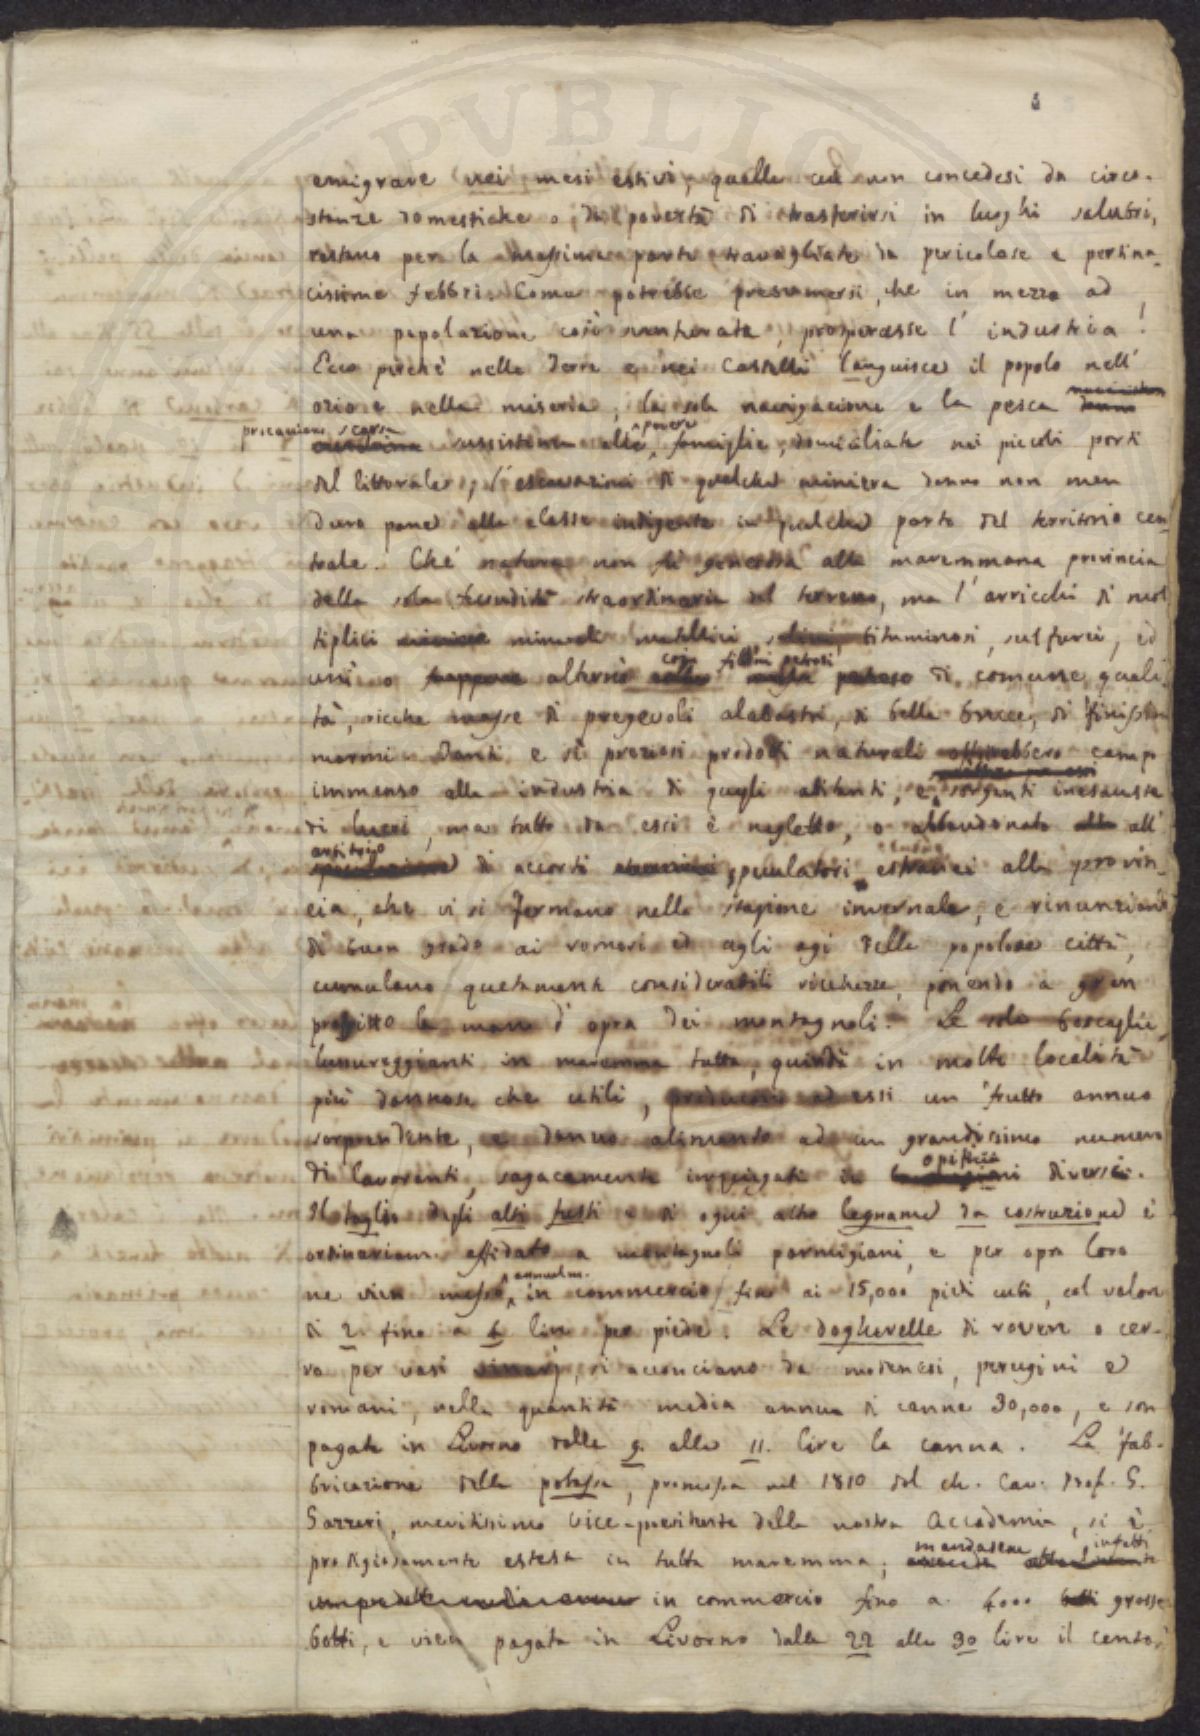 PVBLIC
emigrare nei mesi estivi, quelle cui non concedesi da circo-
stanze domestiche o di povertà di trasferirsi in luoghi salubri,
restano per la massima parte travagliate da pericolose e pertina-
cissime febbri. Come potrebbe presumersi, che in mezzo ad
una popolazione così sventurata, prosperasse l'industria!
Ecco perchè nelle Terre e nei Castelli languisce il popolo nell'
ozio e nella miseria, la sola navigazione e la pesca
scarsa povere
sussistenza alle famiglie domiciliate nei piccoli porti
del littorale, l'escavazioni di qualche miniera danno non men
duro pane alla classe indigente in qualche parte del territorio cen-
trale. Chè natura non fù generosa alla maremmana provincia
della sola fecondità straordinaria del terreno, ma l'arricchì di mol
tiplici minerali metallici, salini, bituminosi, sulfurei, ed
coi filoni petrosi
unì o alternò di comune quali-
tà, ricche masse di pregevoli alabastri, di belle brecce, di finissimi
marmi. Tanti e sì preziosi prodotti naturali offrirebbero campo
immenso alla industria di quegli abitanti, e sorgenti inesauste
di lucri, ma tutto da essi è negletto, o abbandonato all'
arbitrio
di accorti speculatori estranei alla provin-
cia, che vi si fermano nella stagione invernale, e rinunziando
di buon grado ai romori ed agli agi delle popolose città,
cumulano quetamente considerabili ricchezze, ponendo a gran
profitto la mano d'opra dei montagnoli. Le sole boscaglie
lussureggianti in maremma tutta, quindi in molte località
più dannose che utili, producono ad essi un frutto annuo
sorprendente, e danno alimento ad un grandissimo numero
opificii
di lavoranti, sagacemente impiegati in diversi.
Il taglio degli alti fusti e di ogni altro legname da costruzione è
ordinariam. affidato a montagnoli parmigiani, e per opra loro
annualm.
ne vien messo in commercio fino ai 15,000 piedi cubi, col valore
di 2 fino a 6 lire per piede. Le dogherelle di rovere o cer-
ro per vasi vinarj, si acconciano da modenesi, perugini e
romani, nella quantità media annua di canne 30,000, e son
pagate in Livorno dalle 9. alle 11. lire la canna. La fab-
bricazione della potassa, promossa nel 1810 dal ch. Cav. Prof. G.
Gazzeri, meritissimo Vice-presidente della nostra Accademia, si è
mandasene infatti
prodigiosamente estesa in tutta maremma;
in commercio fino a 4000 grosse
botti, e vien pagata in Livorno dalle 22 alle 30 lire il cento: